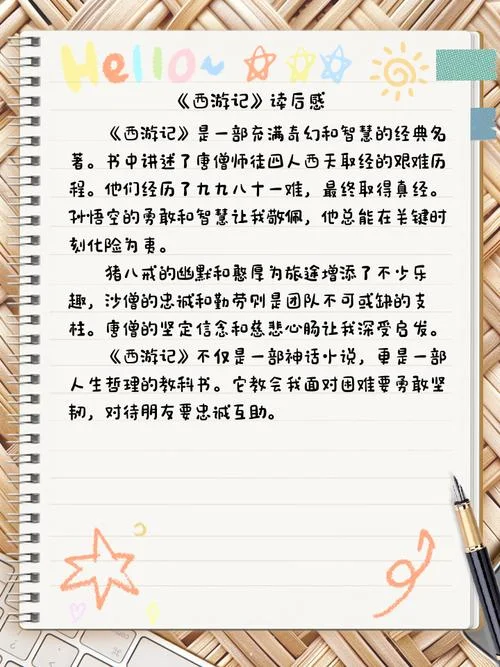 Hello~
《西游记》读后感
《西游记》是一部充满奇幻和智慧的经典名
著。书中讲述了唐僧师徒四人西天取经的艰难历
程。他们经历了九九八十一难，最终取得真经。
孙悟空的勇敢和智慧让我敬佩，他总能在关键时
刻化险为夷。
猪八戒的幽默和憨厚为旅途增添了不少乐
趣，沙僧的忠诚和勤劳则是团队不可或缺的支
柱。唐僧的坚定信念和慈悲心肠让我深受启发。
《西游记》不仅是一部神话小说，更是一部
人生哲理的教科书。它教会我面对困难要勇敢坚
韧，对待朋友要忠诚互助。